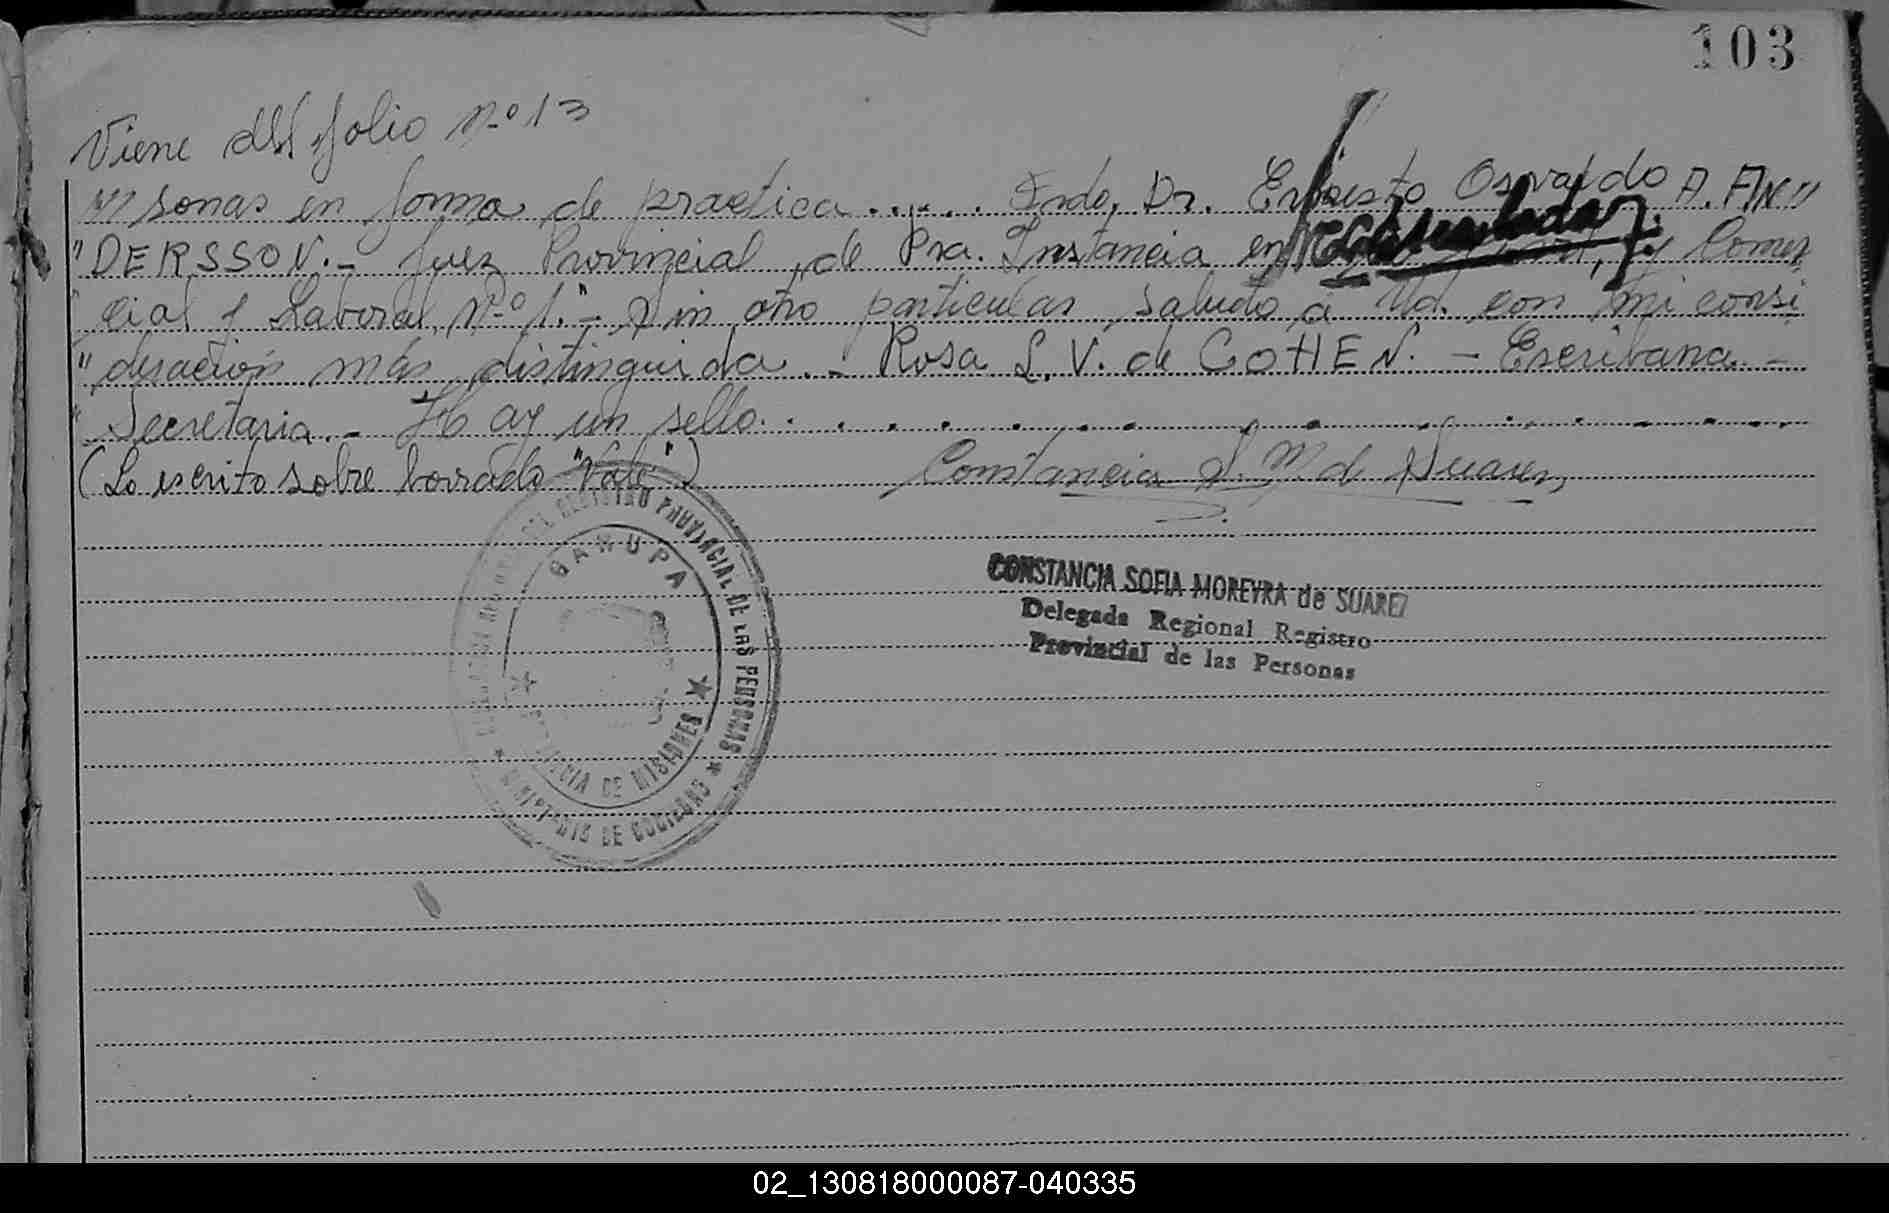 103
Viene del folio Nº 13
"" sonas en forma de practica...... Fndo, Dr. Ernesto Osvaldo A. AN"
"DERSSON.- Juez Provincial, de Pra. Instancia en y Comer
cial y Laboral, Nº 1."- Sin otro particular, saludo a Ud. con mi consi
"deración más distinguida.- Rosa L. V. de COHEN. - Escribana -
" Secretaria.- Hay un sello. . . . . . . . . . . . . . .
(Lo escrito sobre borrado "Vale")
Constancia S. M. de Suarez
REGISTRO PROVINCIAL DE LAS PERSONAS
GARUPA
PROVINCIA DE MISIONES
MINISTERIO DE GOBIERNO
CONSTANCIA SOFIA MOREYRA de SUAREZ
Delegada Regional Registro
Provincial de las Personas
02_130818000087-040335